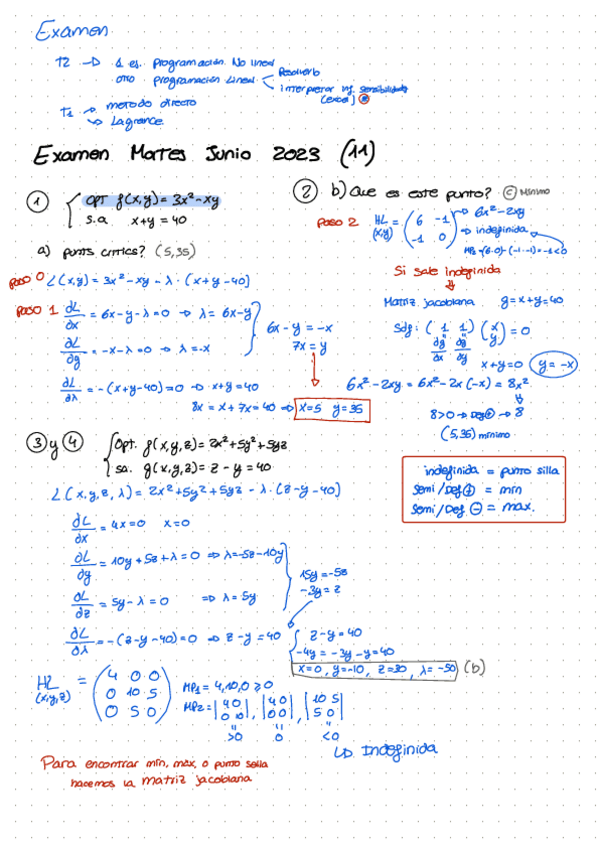 Examen
T2 → 1 es. programación No lineal
otro programación Lineal
Resolverlo
interpretar inf. sensibilidad
(excel)
T1 → metodo directo
↳ Lagrance.
Examen Martes Junio 2023 (11)
① { OPT f(x,y) = 3x²-xy
s.a x+y = 40
a) punts crítics? (5,35)
paso 0 L(x,y) = 3x² - xy - λ · (x+y-40)
paso 1 ∂L/∂x = 6x-y-λ=0 → λ = 6x-y
∂L/∂y = -x-λ=0 → λ=-x
6x-y = -x
7x = y
∂L/∂λ = -(x+y-40)=0 → x+y=40
8x = x+7x=40 ⇒ x=5 y=35
② b) Que es este punto? ⓒ Mínimo
paso 2 HL (x,y) = ( 6 -1 / -1 0 ) → 6x²-2xy
⇒ indefinida
MP2=(6·0)-(-1·-1)=-1<0
Si sale indefinida
Matriz jacobiana g=x+y=40
Sdg: ( 1 1 ) ( x / y ) = 0
∂g/∂x ∂g/∂y
x+y=0 y=-x
6x²-2xy = 6x²-2x(-x) = 8x²
8>0 → Def ⊕ → 8
(5,35) mínimo
indefinida = punto silla
Semi/Def ⊕ = min
Semi/Def ⊖ = max.
③ y ④ { Opt. f(x,y,z) = 2x²+5y²+5yz
sa. g(x,y,z) = z - y = 40
L(x,y,z,λ) = 2x²+5y²+5yz - λ·(z-y-40)
∂L/∂x = 4x=0 x=0
∂L/∂y = 10y+5z+λ=0 ⇒ λ=-5z-10y
∂L/∂z = 5y-λ=0 ⇒ λ=5y
15y=-5z
-3y=z
∂L/∂λ = -(z-y-40)=0 ⇒ z-y=40
z-y=40
-4y = -3y-y=40
x=0, y=-10, z=30, λ=-50 (b)
HL (x,y,z) = ( 4 0 0 / 0 10 5 / 0 5 0 )
MP1 = 4,10,0 ≥0
MP2 = | 4 0 / 0 10 |, | 4 0 / 0 0 |, | 10 5 / 5 0 |
>0 0 <0
↳ Indefinida
Para encontrar min, max, o punto silla
hacemos la matriz jacobiana